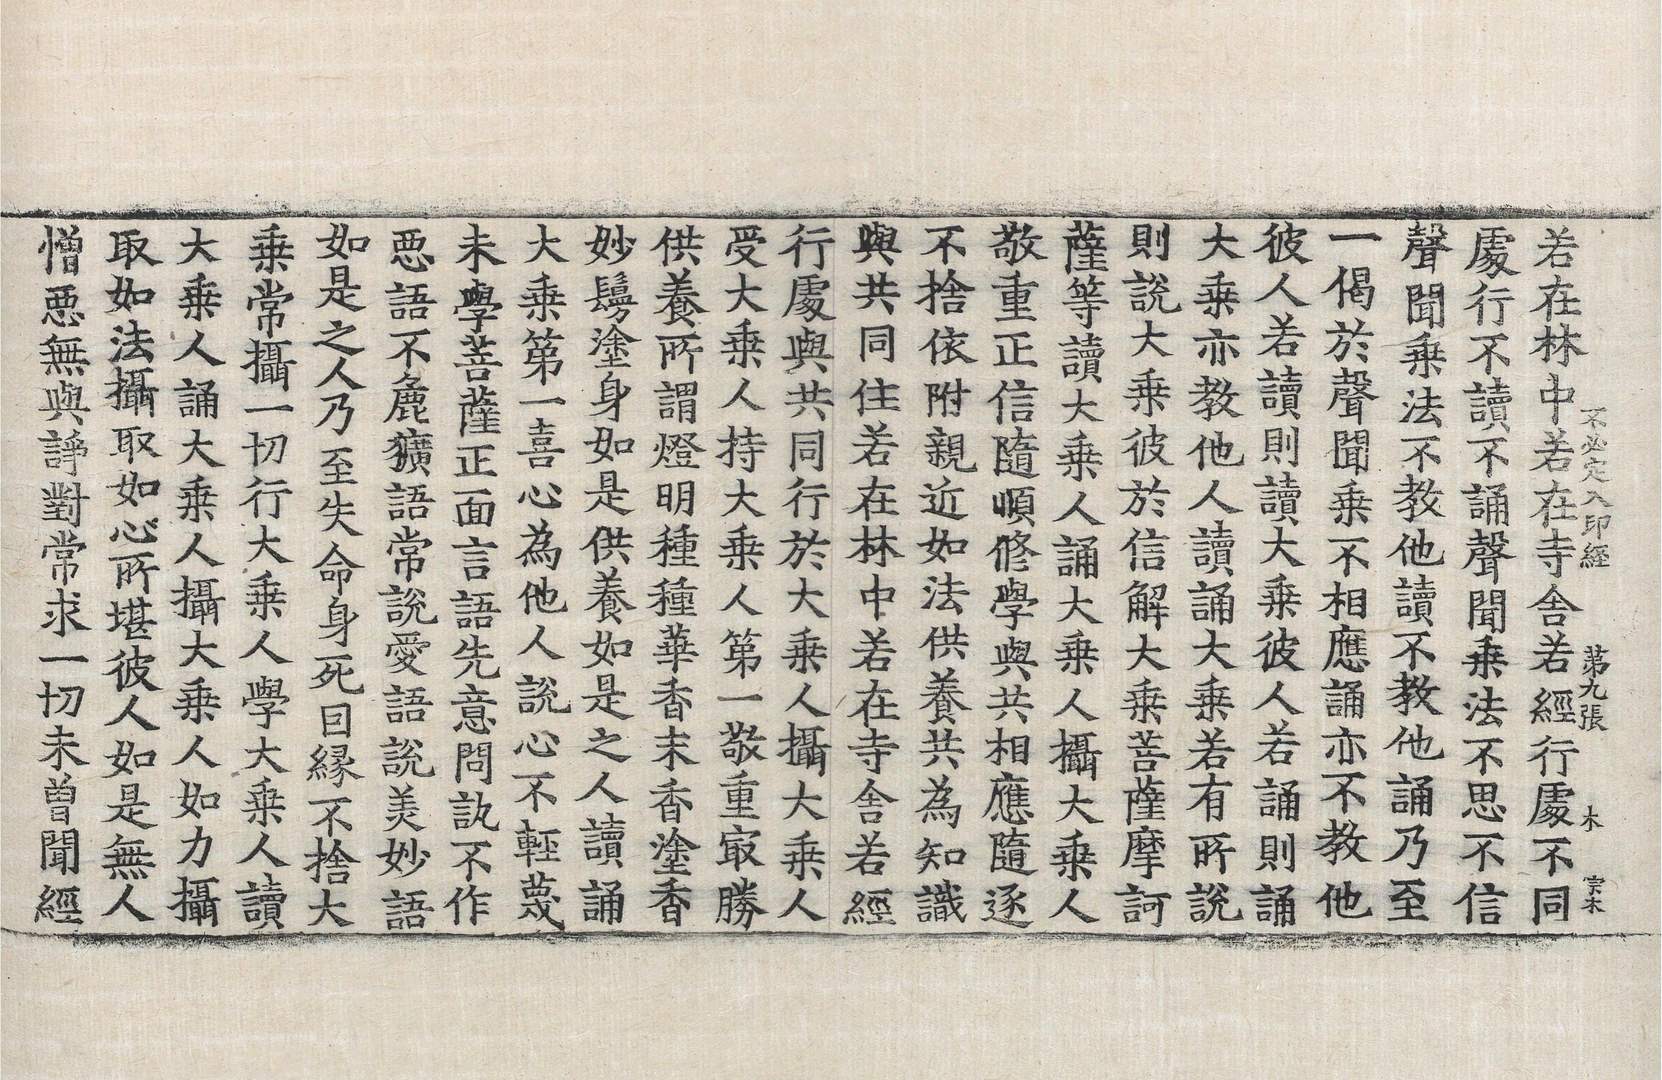 不必定入印経　第九張　木　宗木
若在林中若在寺舍若經行處不同
處行不讀不誦聲聞乗法不思不信
聲聞乗法不教他讀不教他誦乃至
一偈於聲聞乗不相應誦亦不教他
彼人若讀則讀大乗彼人若誦則誦
大乗亦教他人讀誦大乗若有所說
則說大乗彼於信解大乗菩薩摩訶
薩等讀大乗人誦大乗人攝大乗人
敬重正信隨順修學與共相應隨逐
不捨依附親近如法供養共為知識
與共同住若在林中若在寺舍若經
行處與共同行於大乗人攝大乗人
受大乗人持大乗人第一敬重冣勝
供養所謂燈明種種華香末香塗香
妙鬘塗身如是供養如是之人讀誦
大乗第一喜心為他人說心不輕蔑
未學菩薩正面言語先意問訊不作
惡語不麁獷語常說愛語說美妙語
如是之人乃至失命身死因縁不捨大
乗常攝一切行大乗人學大乗人讀
大乗人誦大乗人攝大乗人如力攝
取如法攝取如心所堪彼人如是無人
憎惡無與諍對常求一切未曽聞經